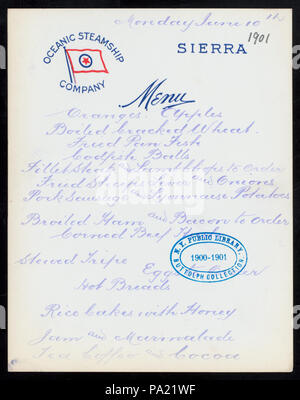 Monday June 10th
1901
OCEANIC STEAMSHIP
COMPANY
SIERRA
Menu
Oranges Apples
Boiled Cracked Wheat
Fried Pan Fish
Codfish Balls
Fillet Steak Lamb Chops to Order
Fried Sheeps Liver and Onions
Pork Sausage Lyonnaise Potatoes
Broiled Ham and Bacon to Order
Corned Beef Hash
Stewed Tripe
Eggs to Order
Hot Breads
Rice Cakes with Honey
Jam and Marmalade
Tea Coffee and Cocoa
N.Y. PUBLIC LIBRARY
1900-1901
BUTTOLPH COLLECTION
alamy
Image ID: PA21WF
www.alamy.com